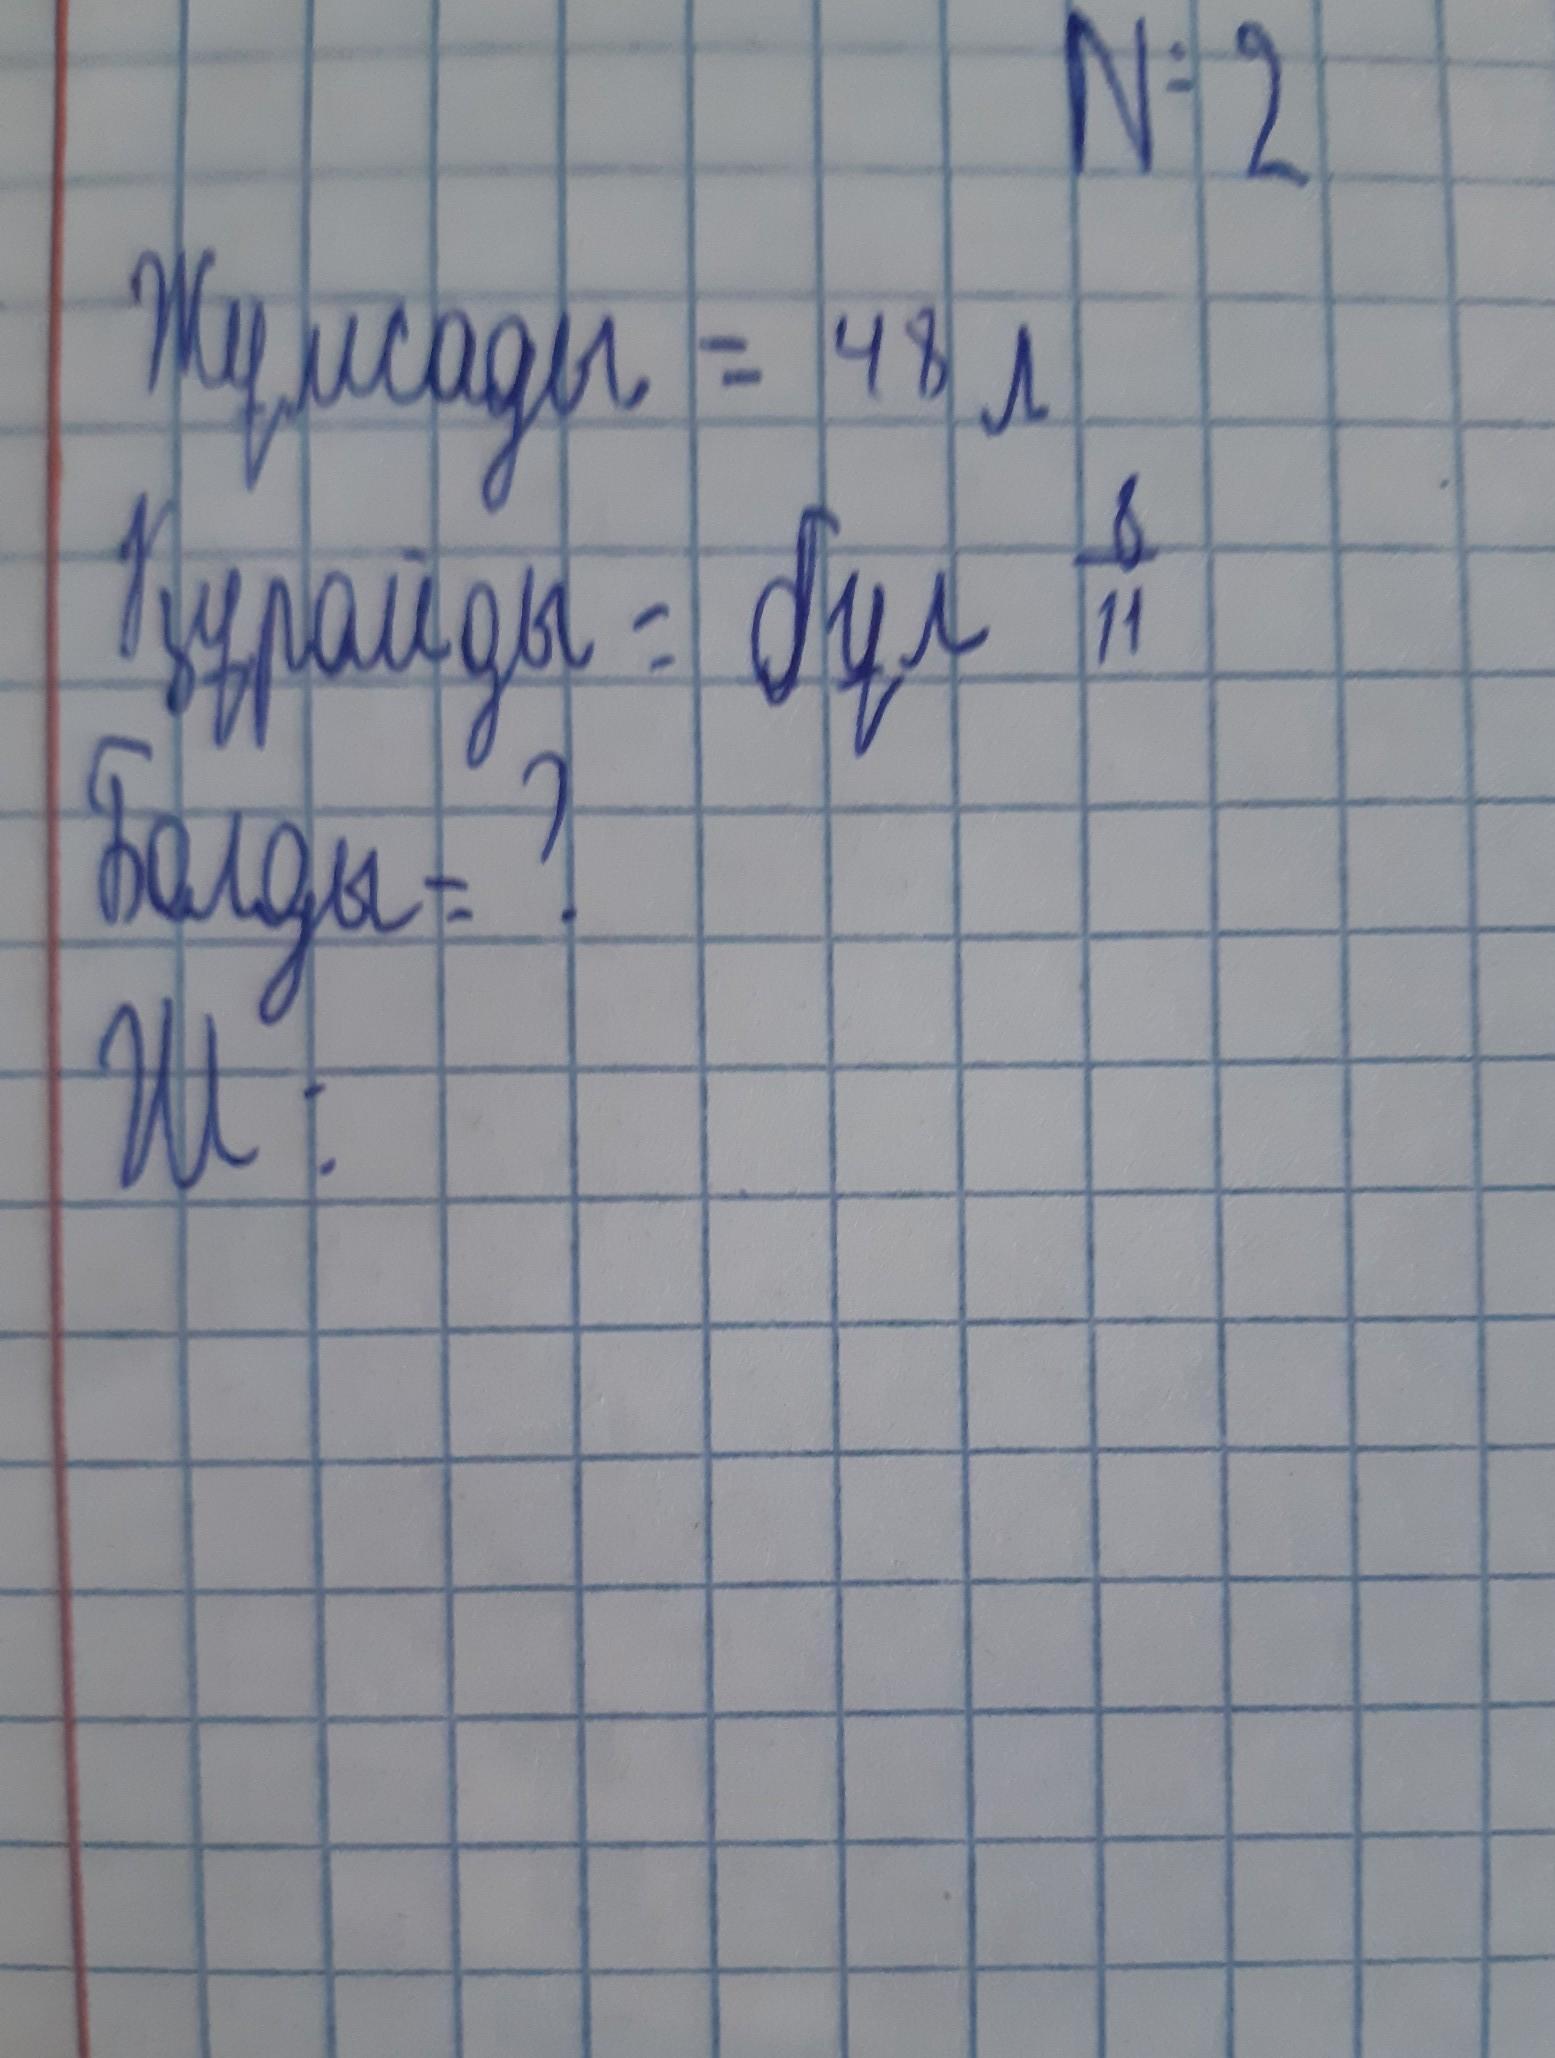 N: 2
Жұмсады = 48 л
Құрайды = бұл 8/11
Болды = ?
Ш :